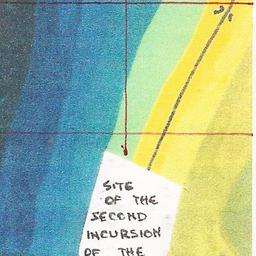 SITE
OF THE
SECOND
INCURSION
OF THE